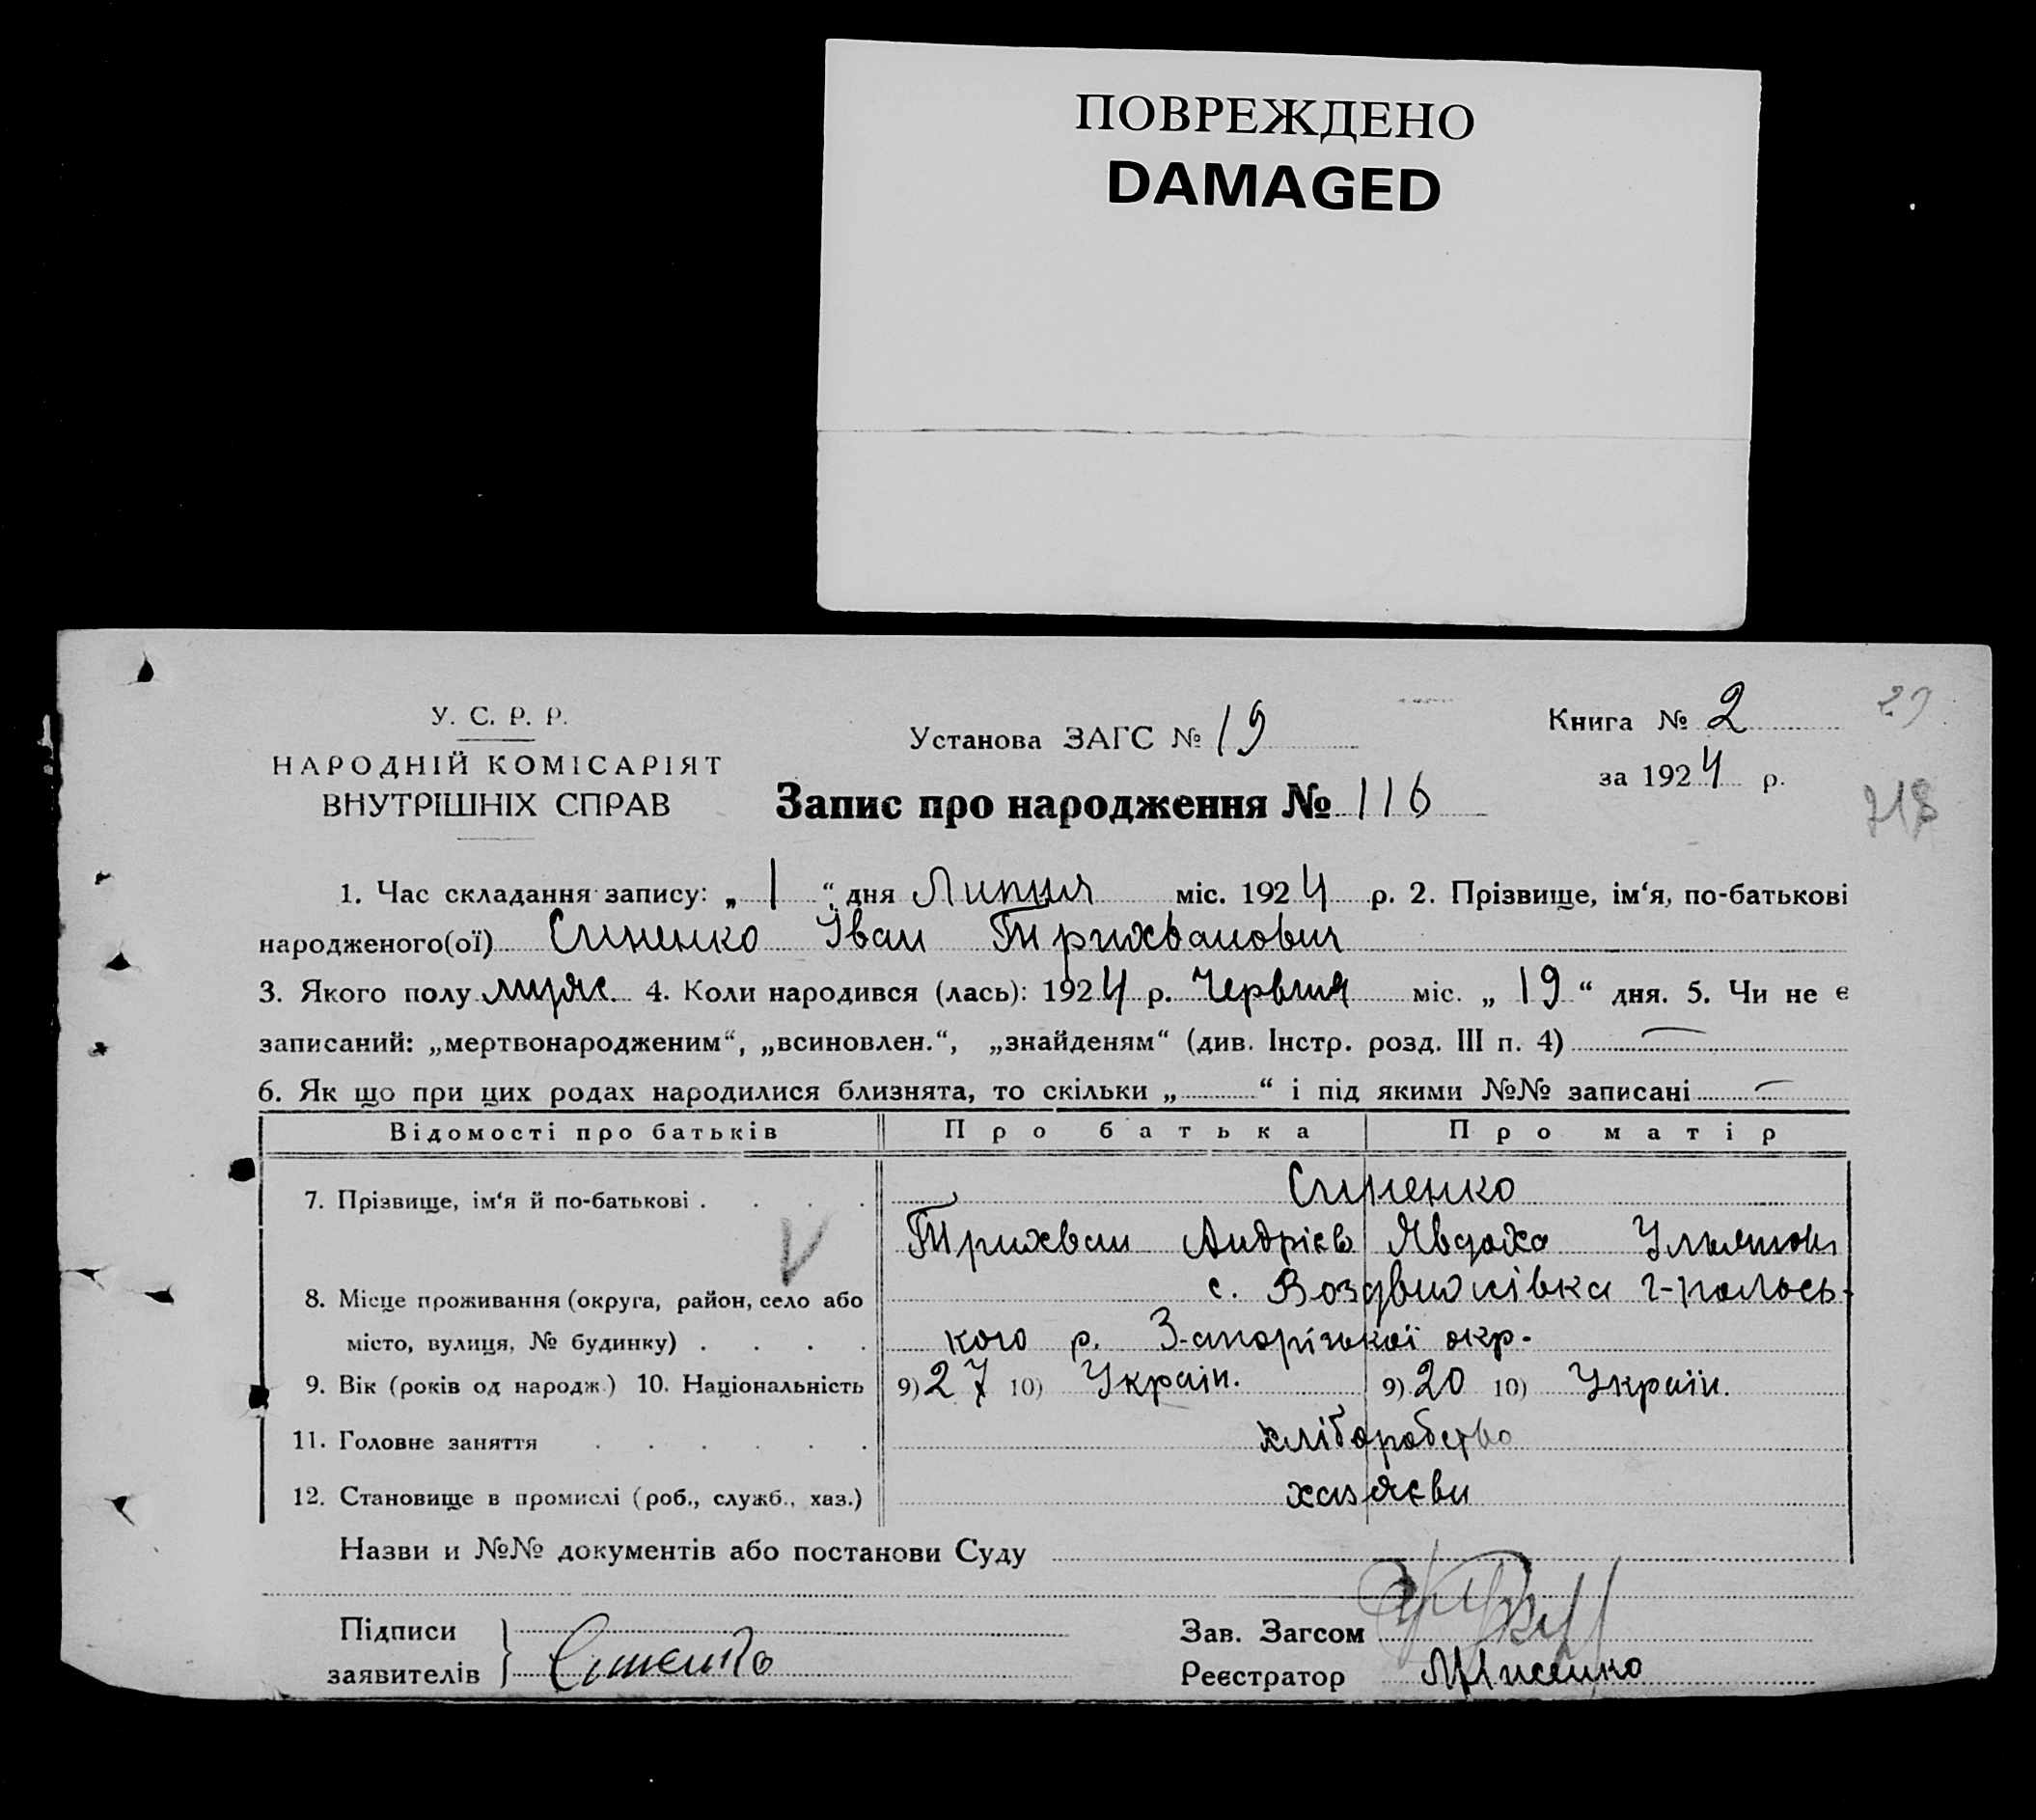 ПОВРЕЖДЕНО
DAMAGED
29
У. С. Р. Р.
НАРОДНІЙ КОМІСАРІЯТ
ВНУТРІШНІХ СПРАВ
Установа ЗАГС № 19
Книга № 2
за 1924 р.
Запис про народження № 116
1. Час складання запису: „ 1 “ дня Липця міс. 1924 р. 2. Прізвище, ім‘я, по-батькові
народженого(ої) Синенко Іван Трихванович
3. Якого полу муж. 4. Коли народився (лась): 1924 р. Червня міс. „ 19 “ дня. 5. Чи не є
записаний: „мертвонародженим“, „всиновлен.“, „знайденям“ (див. Інстр. розд. III п. 4) —
6. Як що при цих родах народилися близнята, то скільки „ “ і під якими №№ записані —
Відомості про батьків Про батька Про матір
7. Прізвище, ім‘я й по-батькові . . . . Синенко
Трихван Андрієв Явдоха
8. Місце проживання (округа, район, село або с. Воздвижівка г-польсь-
місто, вулиця, № будинку) . . . . кого р. З-апорізької окр.
9. Вік (років од народж.) 10. Національність 9) 27 10) Україн. 9) 20 10) Україн.
11. Головне заняття . . . . . . хліборобство
12. Становище в промислі (роб., служб., хаз.) хазяєви
Назви и №№ документів або постанови Суду
Підписи
заявителів } Синенко
Зав. Загсом
Реєстратор Лисенко